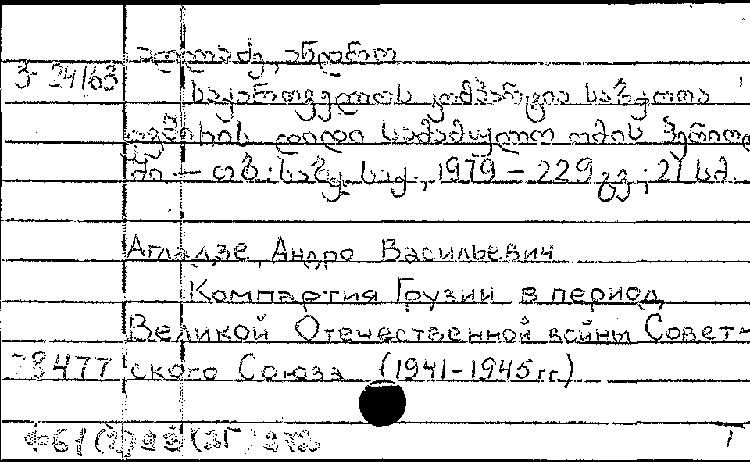 აგლაძე, ანდრო
3-24163
საქართველოს კომპარტია საბჭოთა
კავშირის დიდი სამამულო ომის პერიოდ
ში — თბ.: საბჭ. საქ., 1979 – 229 გვ; 21 სმ.
Агладзе, Андро Васильевич
Компартия Грузии в период
Великой Отечественной войны Совет-
78477 ского Союза (1941-1945 гг.)